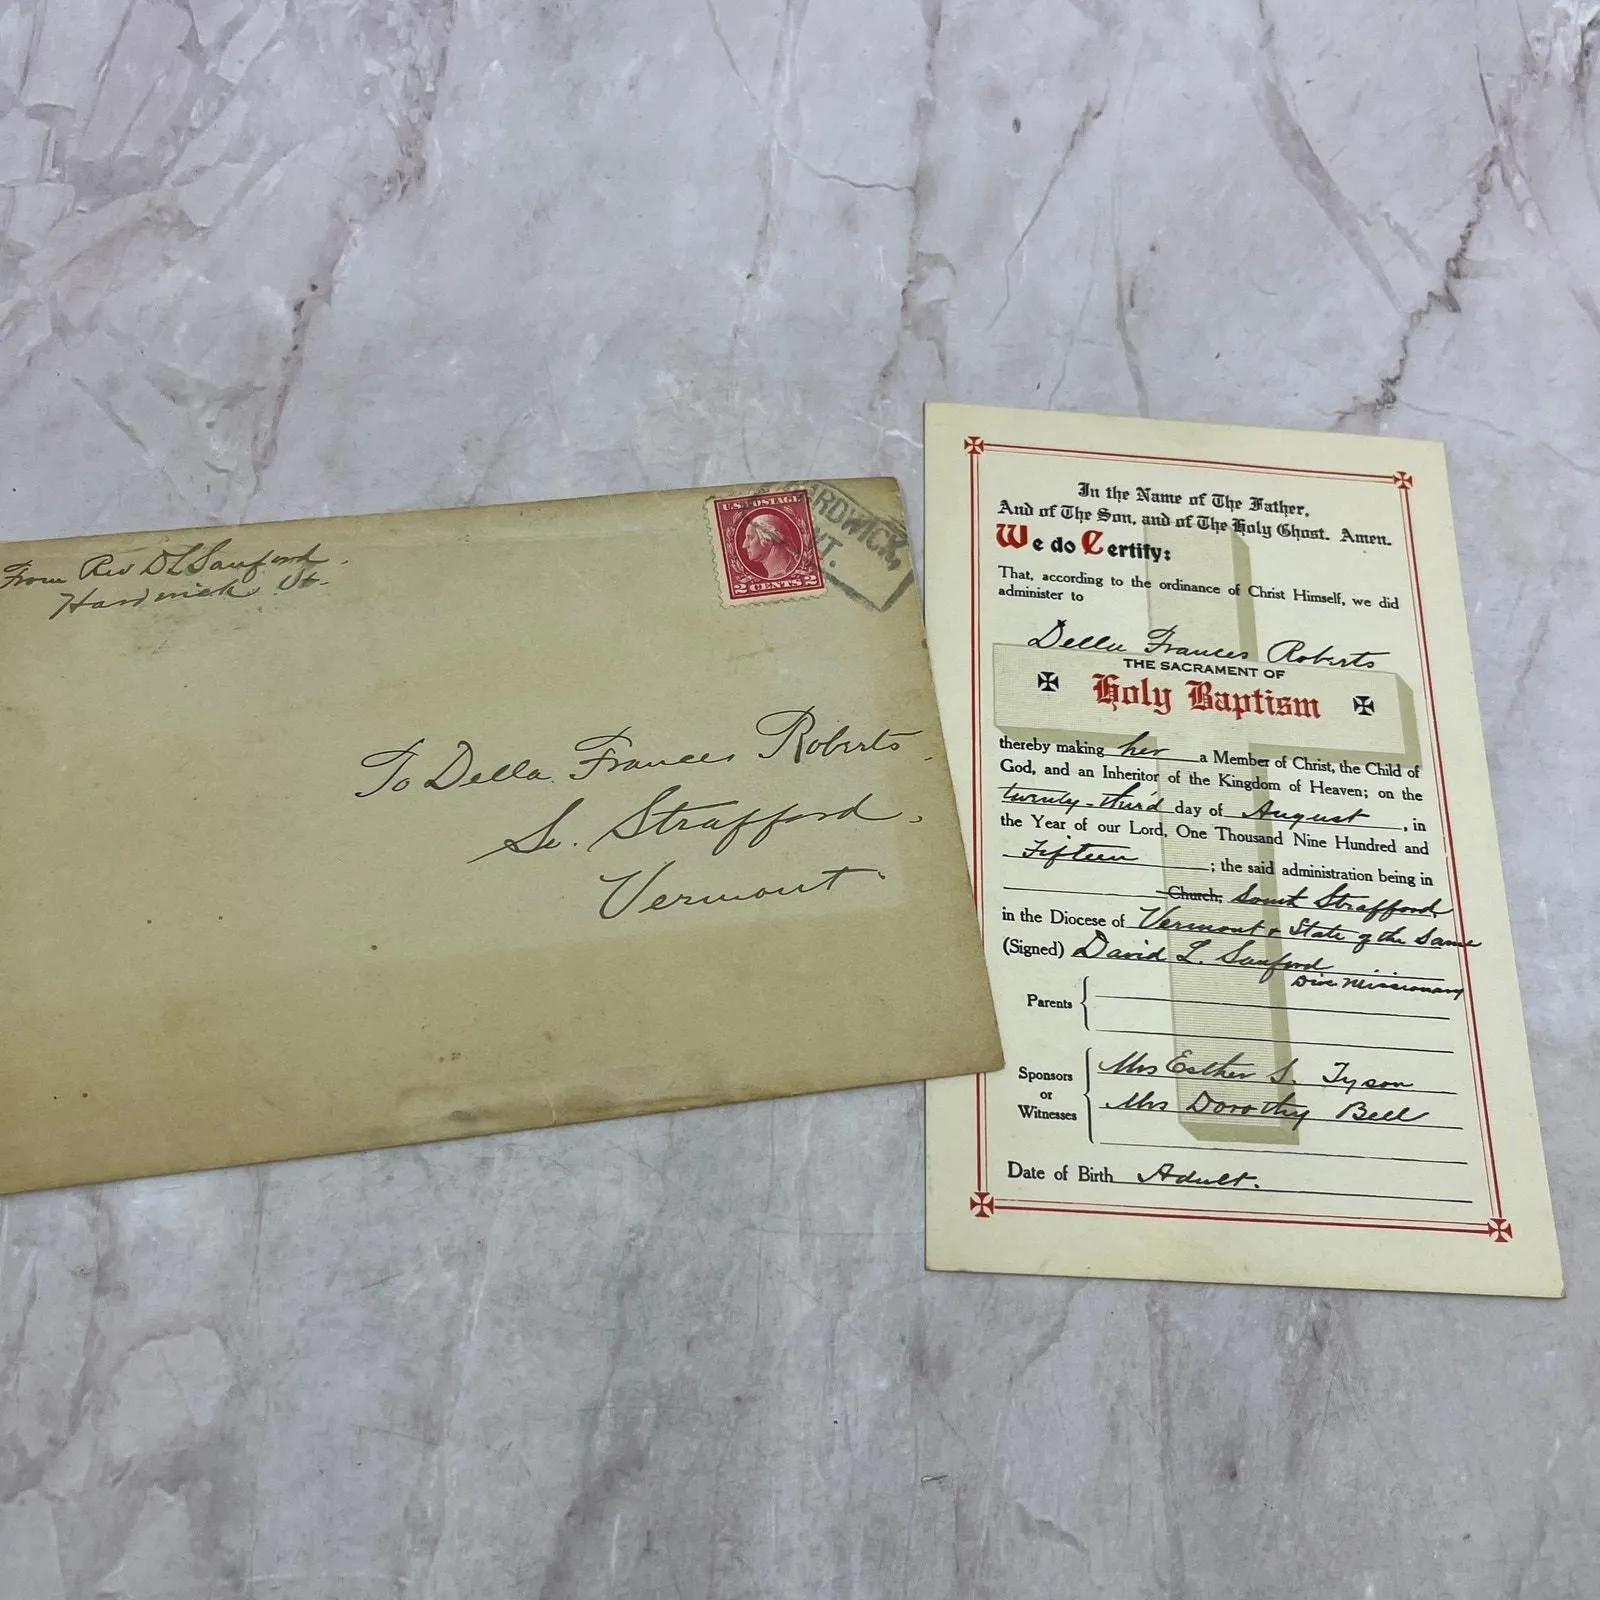 From Rev D L Sanford.
Hardwick Vt.
U.S. POSTAGE
2 CENTS 2
HARDWICK,
VT.
To Della Frances Roberts.
So. Strafford,
Vermont.
In the Name of The Father,
And of The Son, and of The Holy Ghost. Amen.
We do Certify:
That, according to the ordinance of Christ Himself, we did
administer to
Della Frances Roberts
THE SACRAMENT OF
Holy Baptism
thereby making her a Member of Christ, the Child of
God, and an Inheritor of the Kingdom of Heaven; on the
twenty-third day of August, in
the Year of our Lord, One Thousand Nine Hundred and
Fifteen; the said administration being in
Church, South Strafford,
in the Diocese of Vermont & State of the Same
(Signed) David L. Sanford
Dioc. Missionary
Parents
Sponsors or Witnesses
Mrs Esther S. Tyson
Mrs Dorothy Bell
Date of Birth Adult.